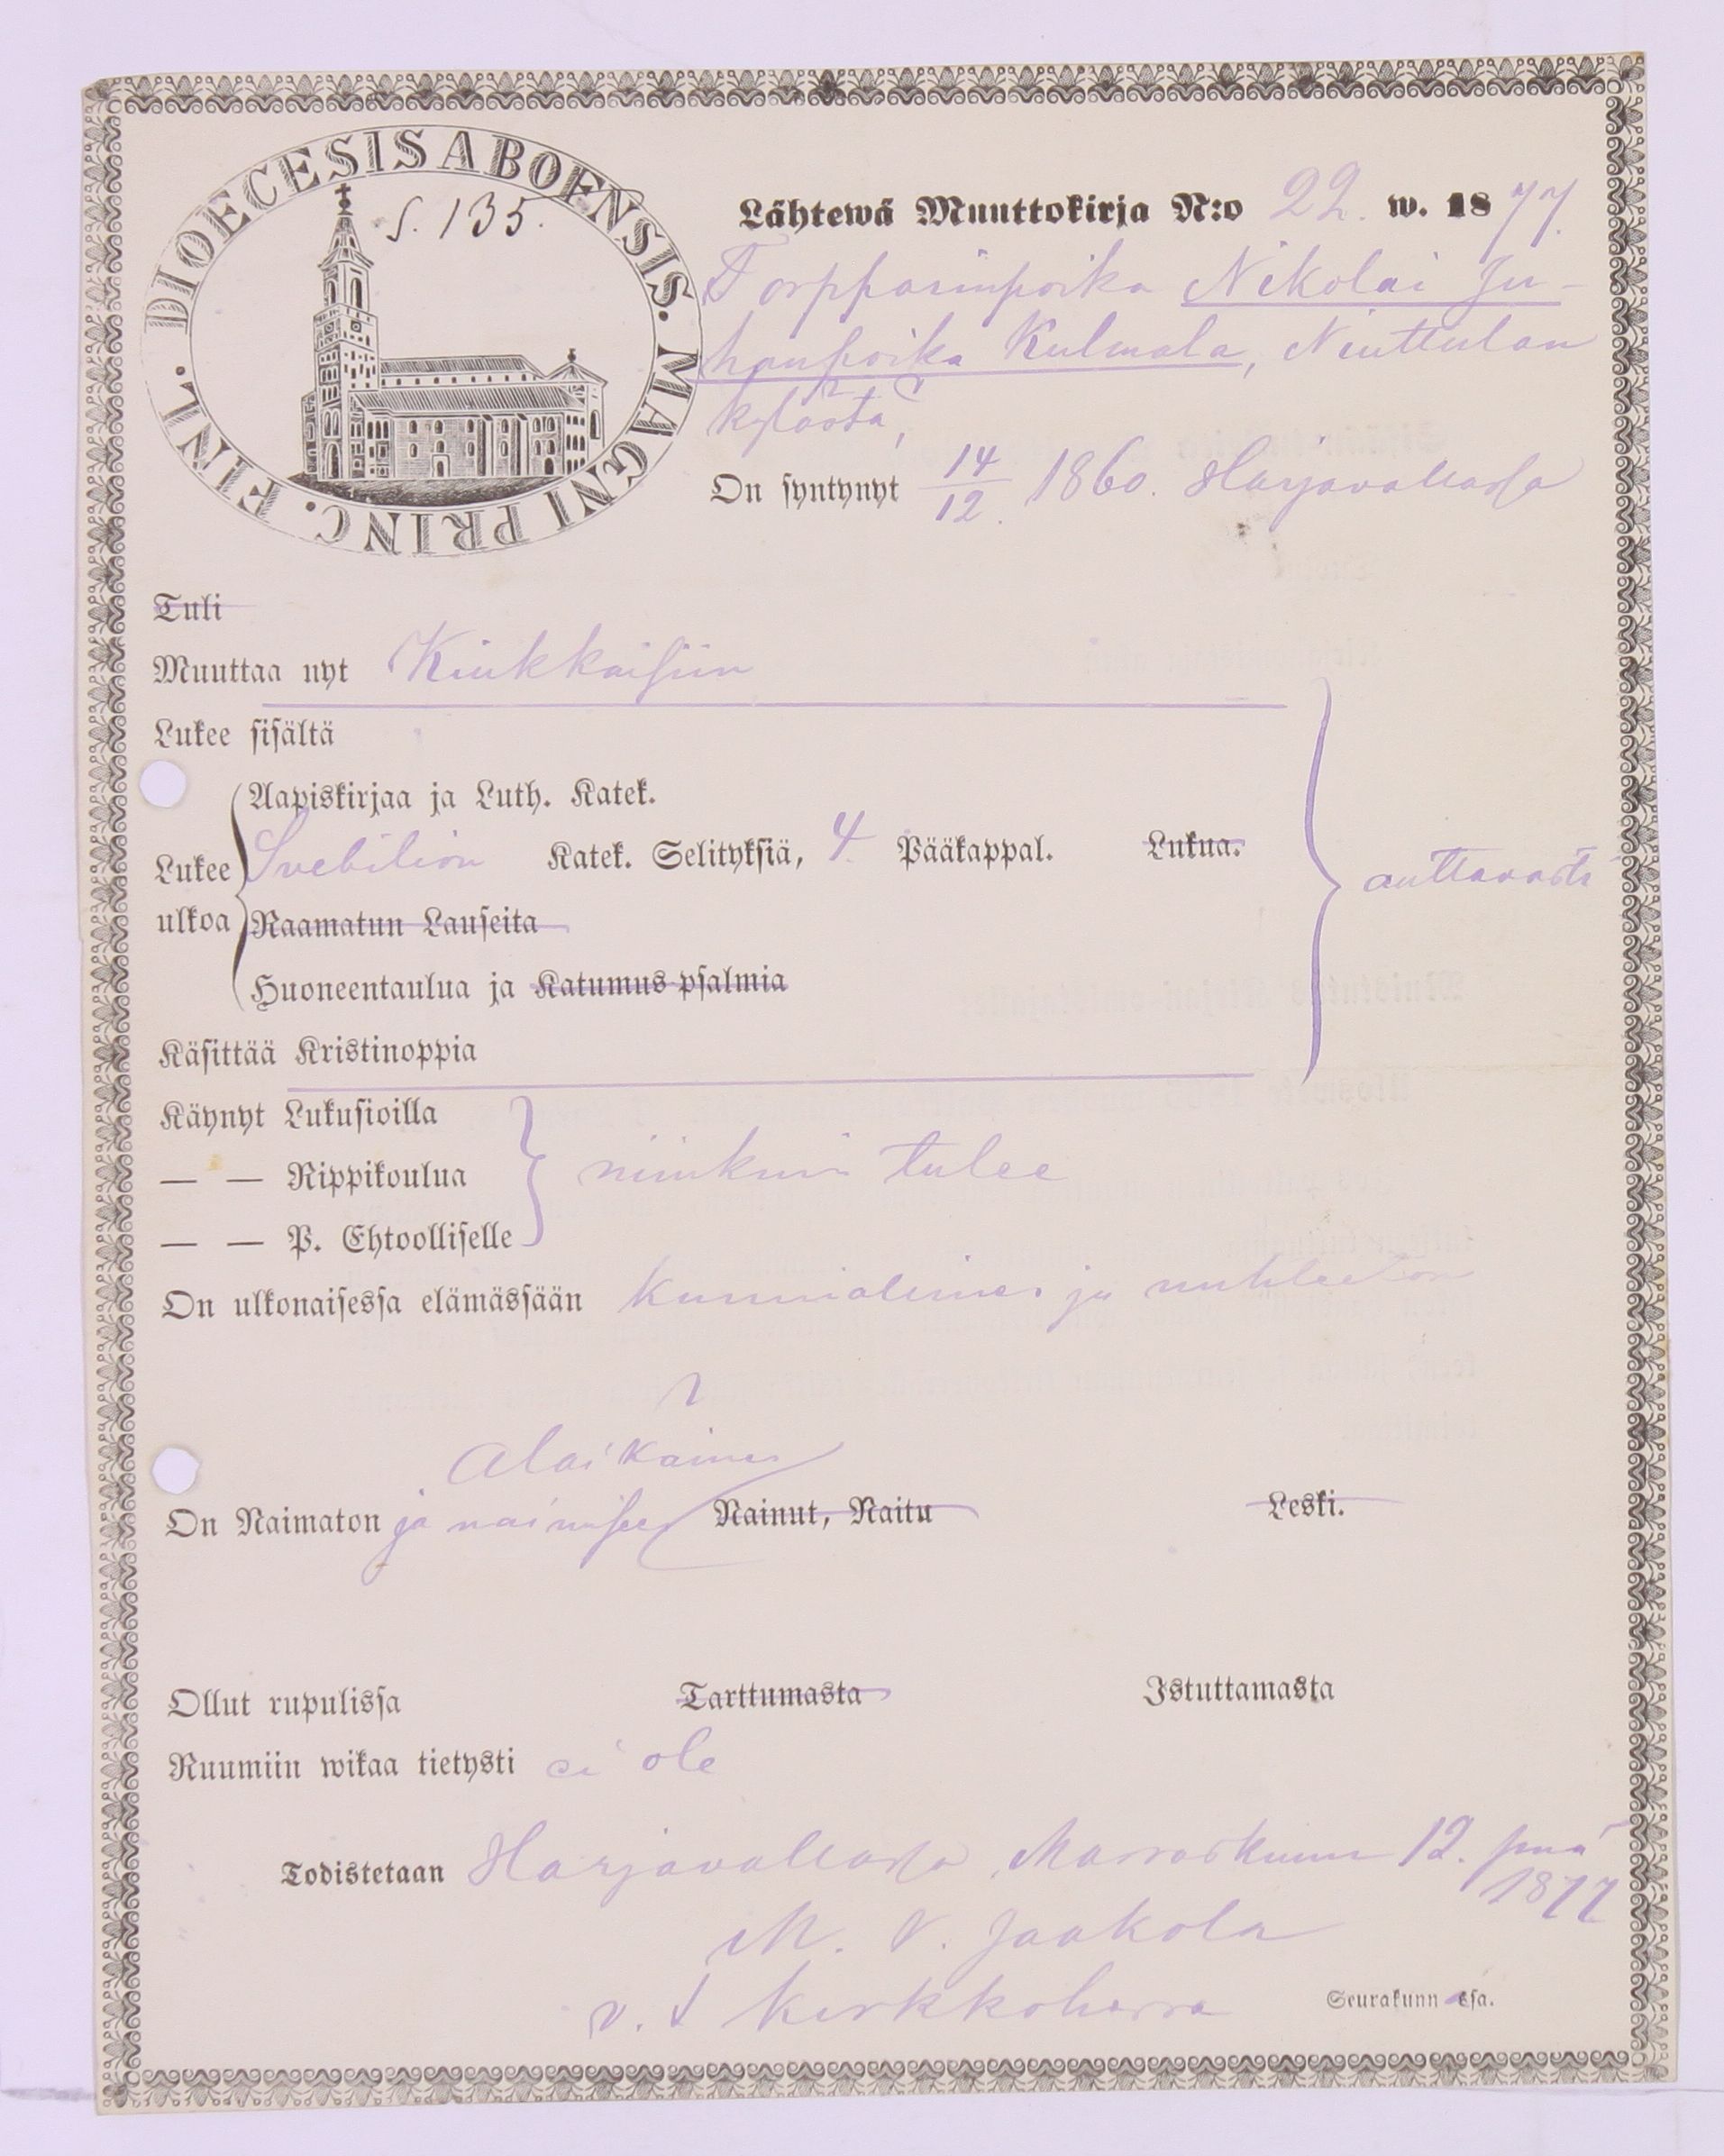 DIOECESIS ABOENSIS. MAGNI PRINC. FINL.
S. 135.
Lähtewä Muuttokirja N:o 22. w. 1877.
Torpparinpoika Nikolai Ju-
hanpoika Kulmala, Niuttulan
kylästä,
On syntynyt 14/12. 1860. Harjavallassa
Tuli
Muuttaa nyt Kiukkaisiin
Lukee sisältä
Aapiskirjaa ja Luth. Katek.
Lukee ulkoa Svebilion Katek. Selityksiä, 4. Pääkappal. Lukua. auttavasti
Raamatun Lauseita
Huoneentaulua ja Katumus-psalmia
Käsittää Kristinoppia
Käynyt Lukusioilla
— — Rippikoulua niinkuin tulee
— — P. Ehtoolliselle
On ulkonaisessa elämässään kunniallinen ja nuhteeton
alaikäinen
On Naimaton ja naimisee Nainut, Naitu Leski.
Ollut rupulissa Tarttumasta Istuttamasta
Ruumiin wikaa tietysti ei ole
Todistetaan Harjavallassa, Marraskuun 12. pnä
1877
M. V. Jaakola
v. t. kirkkoherra Seurakunnassa.